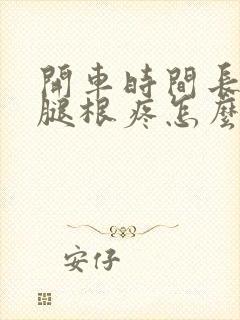 開車時間長
腿根疼怎麼
安仔